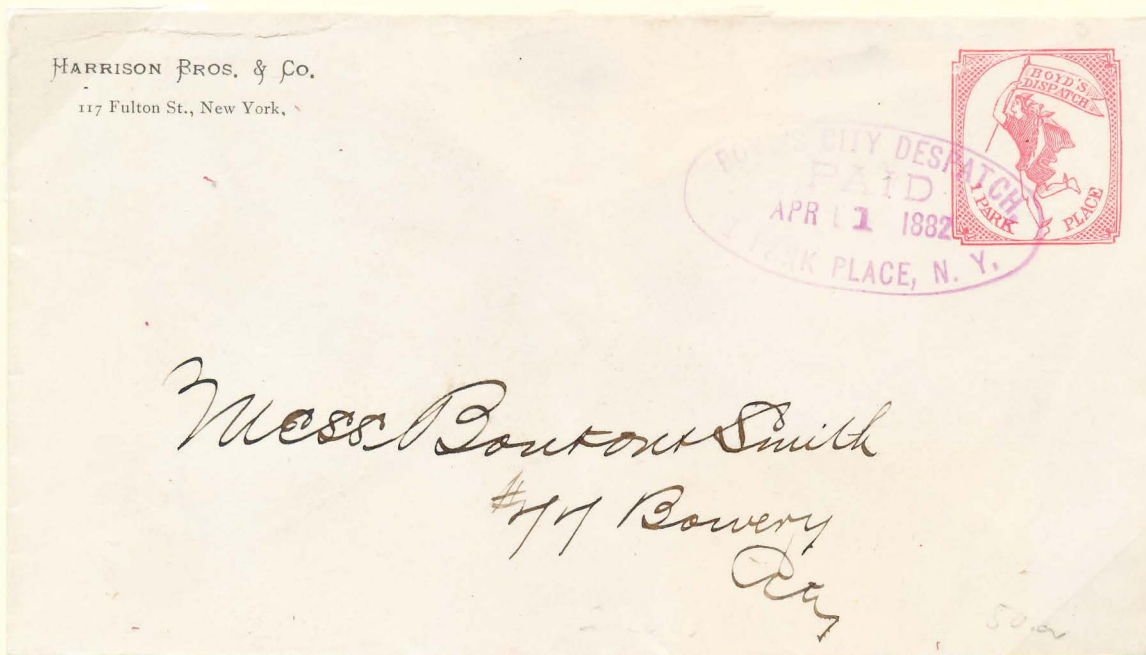 HARRISON BROS. & Co.
117 Fulton St., New York,
BOYD'S
DISPATCH
1 PARK PLACE
BOYD'S CITY DESPATCH,
PAID
APR 11 1882
1 PARK PLACE, N. Y.
Mess Smith
#77 Bowery
City
50.00